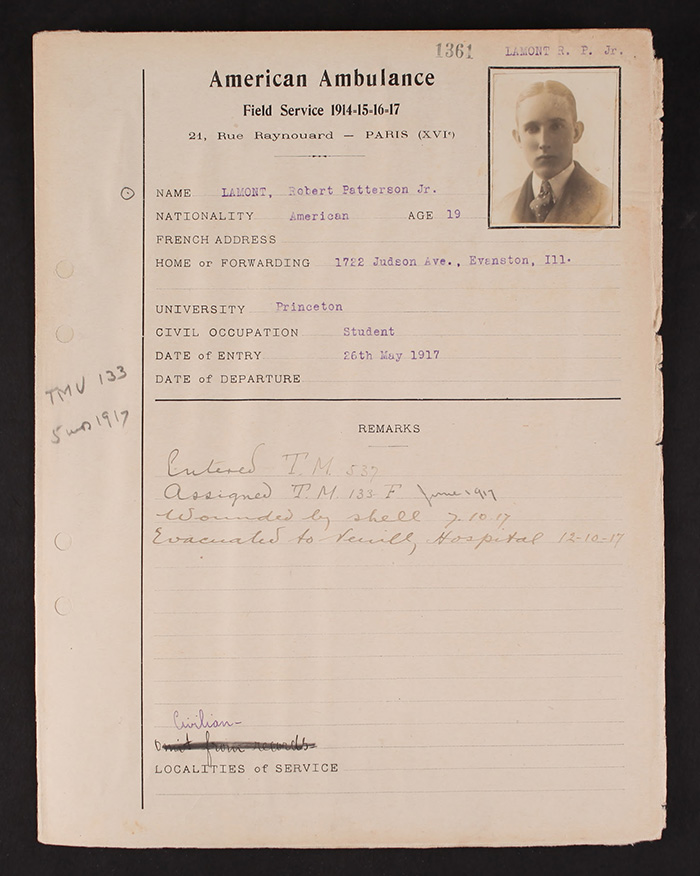 1361 LAMONT R. P. Jr.
American Ambulance
Field Service 1914-15-16-17
21, Rue Raynouard — PARIS (XVIᵉ)
NAME LAMONT, Robert Patterson Jr.
NATIONALITY American AGE 19
FRENCH ADDRESS
HOME or FORWARDING 1722 Judson Ave., Evanston, Ill.
UNIVERSITY Princeton
CIVIL OCCUPATION Student
DATE of ENTRY 26th May 1917
DATE of DEPARTURE
TMU 133
5 mos 1917
REMARKS
Entered T.M. 537
Assigned T.M. 133 F June 1917
Wounded by shell 7.10.17
Evacuated to Neuilly Hospital 12-10-17
Civilian-
Omit from records-
LOCALITIES of SERVICE